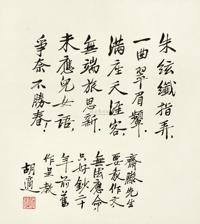 朱絃纖指弄，
一曲翠眉顰，
滿座天涯客，
無端旅思新，
未應兒女語，
爭奈不勝春，
齋藤先生
要教作冬
無國應命，
只好鈔二十
年前舊
作呈教
胡適